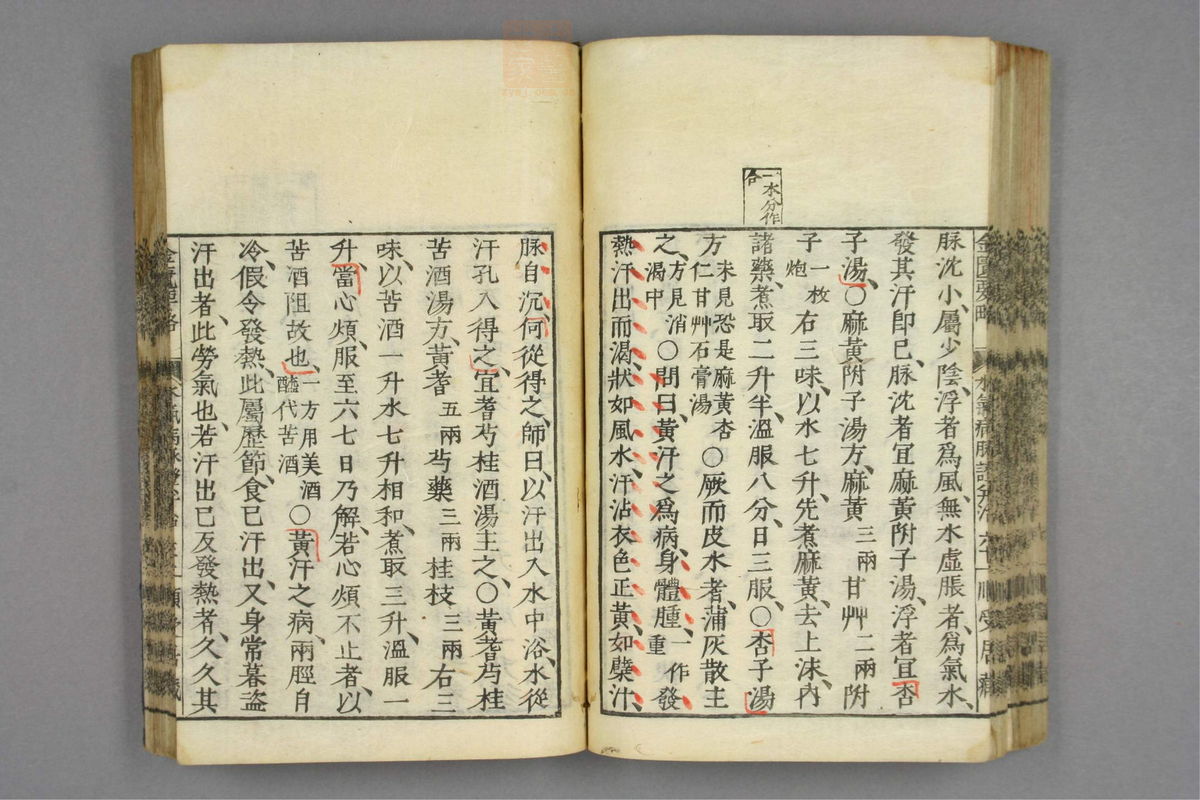 一水分作
合
脉沈小屬少陰浮者爲風無水虛脹者爲氣水
發其汗卽已脉沈者宜麻黃附子湯浮者宜杏
子湯○麻黃附子湯方麻黃三兩甘艸二兩附
子一枚炮右三味以水七升先煮麻黃去上沫內
諸藥煮取二升半溫服八分日三服○杏子湯
方未見恐是麻黃杏仁甘艸石膏湯○厥而皮水者蒲灰散主
之方見消渴中○問曰黃汗之爲病身體腫一作重發
熱汗出而渴狀如風水汗沾衣色正黃如蘗汁
脉自沉何從得之師曰以汗出入水中浴水從
汗孔入得之宜耆芍桂酒湯主之○黃耆芍桂
苦酒湯方黃耆五兩芍藥三兩桂枝三兩右三
味以苦酒一升水七升相和煮取三升溫服一
升當心煩服至六七日乃解若心煩不止者以
苦酒阻故也一方用美酒醯代苦酒○黃汗之病兩脛自
冷假令發熱此屬歷節食已汗出又身常暮盜
汗出者此勞氣也若汗出已反發熱者久久其